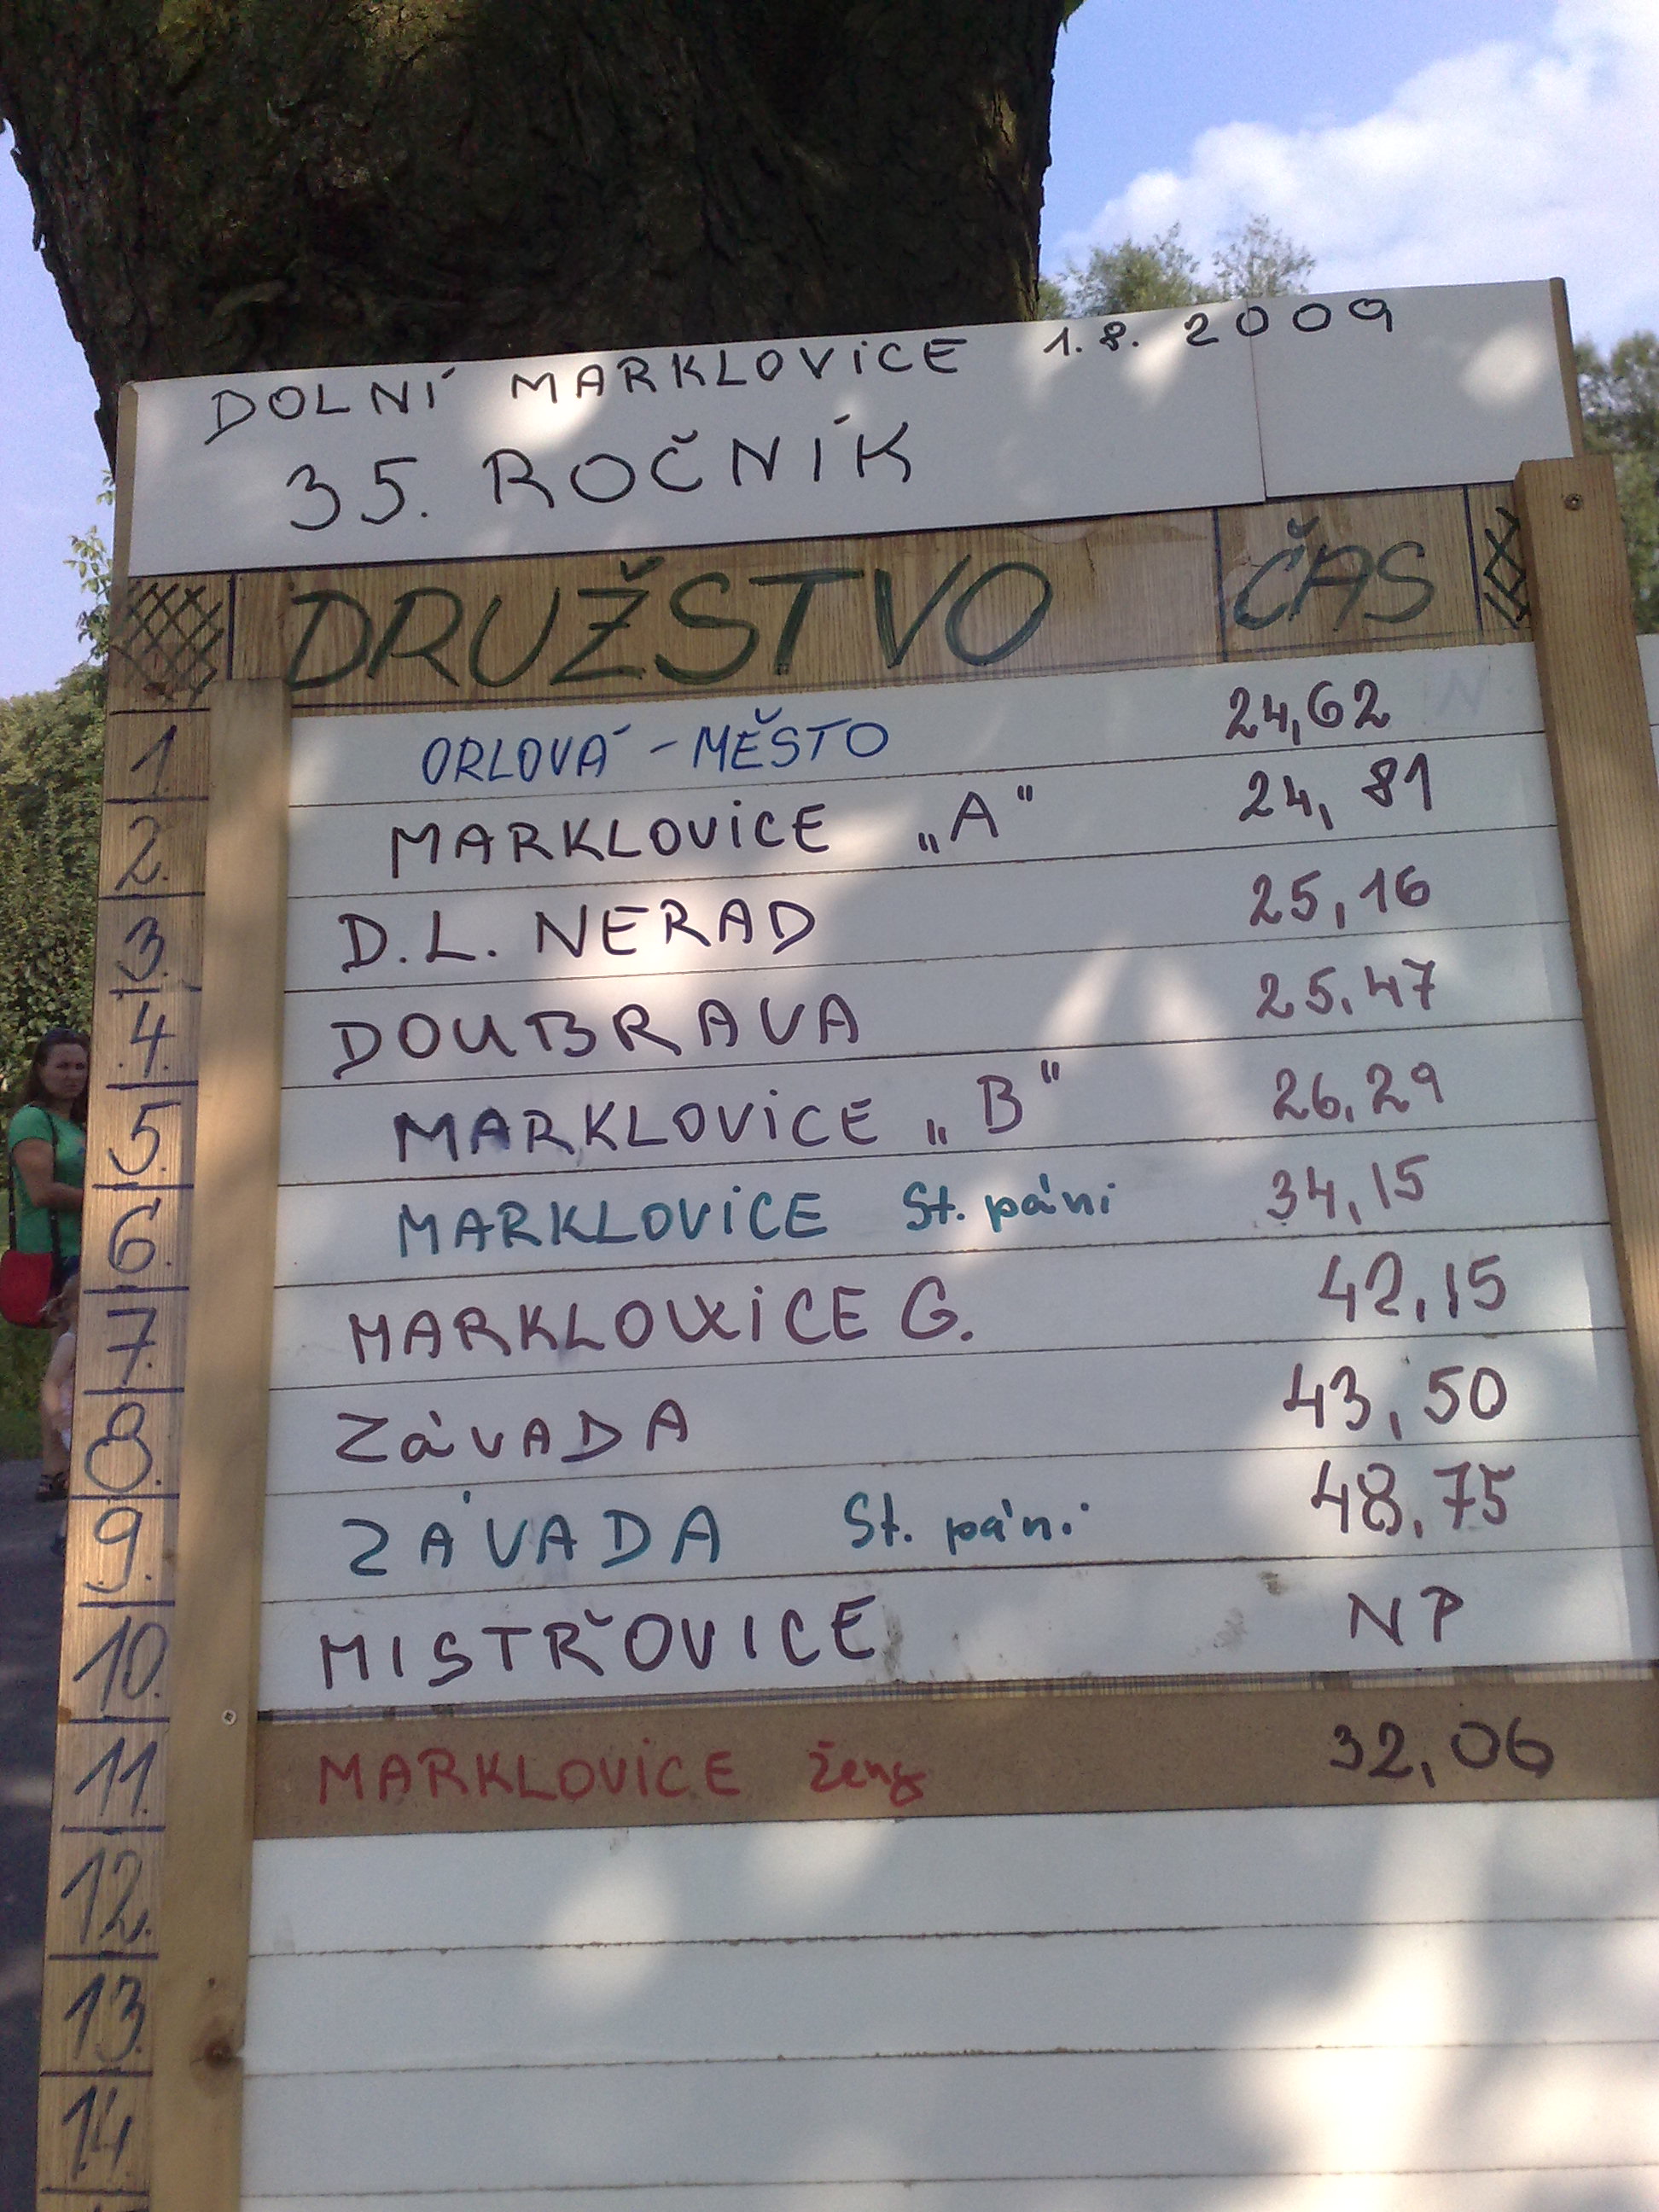 DOLNÍ MARKLOVICE 1.8. 2009
35. ROČNÍK
DRUŽSTVO ČAS
1. ORLOVÁ - MĚSTO 24,62
2. MARKLOVICE „A“ 24,81
3. D.L. NERAD 25,16
4. DOUBRAVA 25,47
5. MARKLOVICE „B“ 26,29
6. MARKLOVICE St. páni 34,15
7. MARKLOWICE G. 42,15
8. ZáVADA 43,50
9. ZÁVADA St. páni 48,75
10. MISTŘOVICE NP
11. MARKLOVICE ženy 32,06
12.
13.
14.